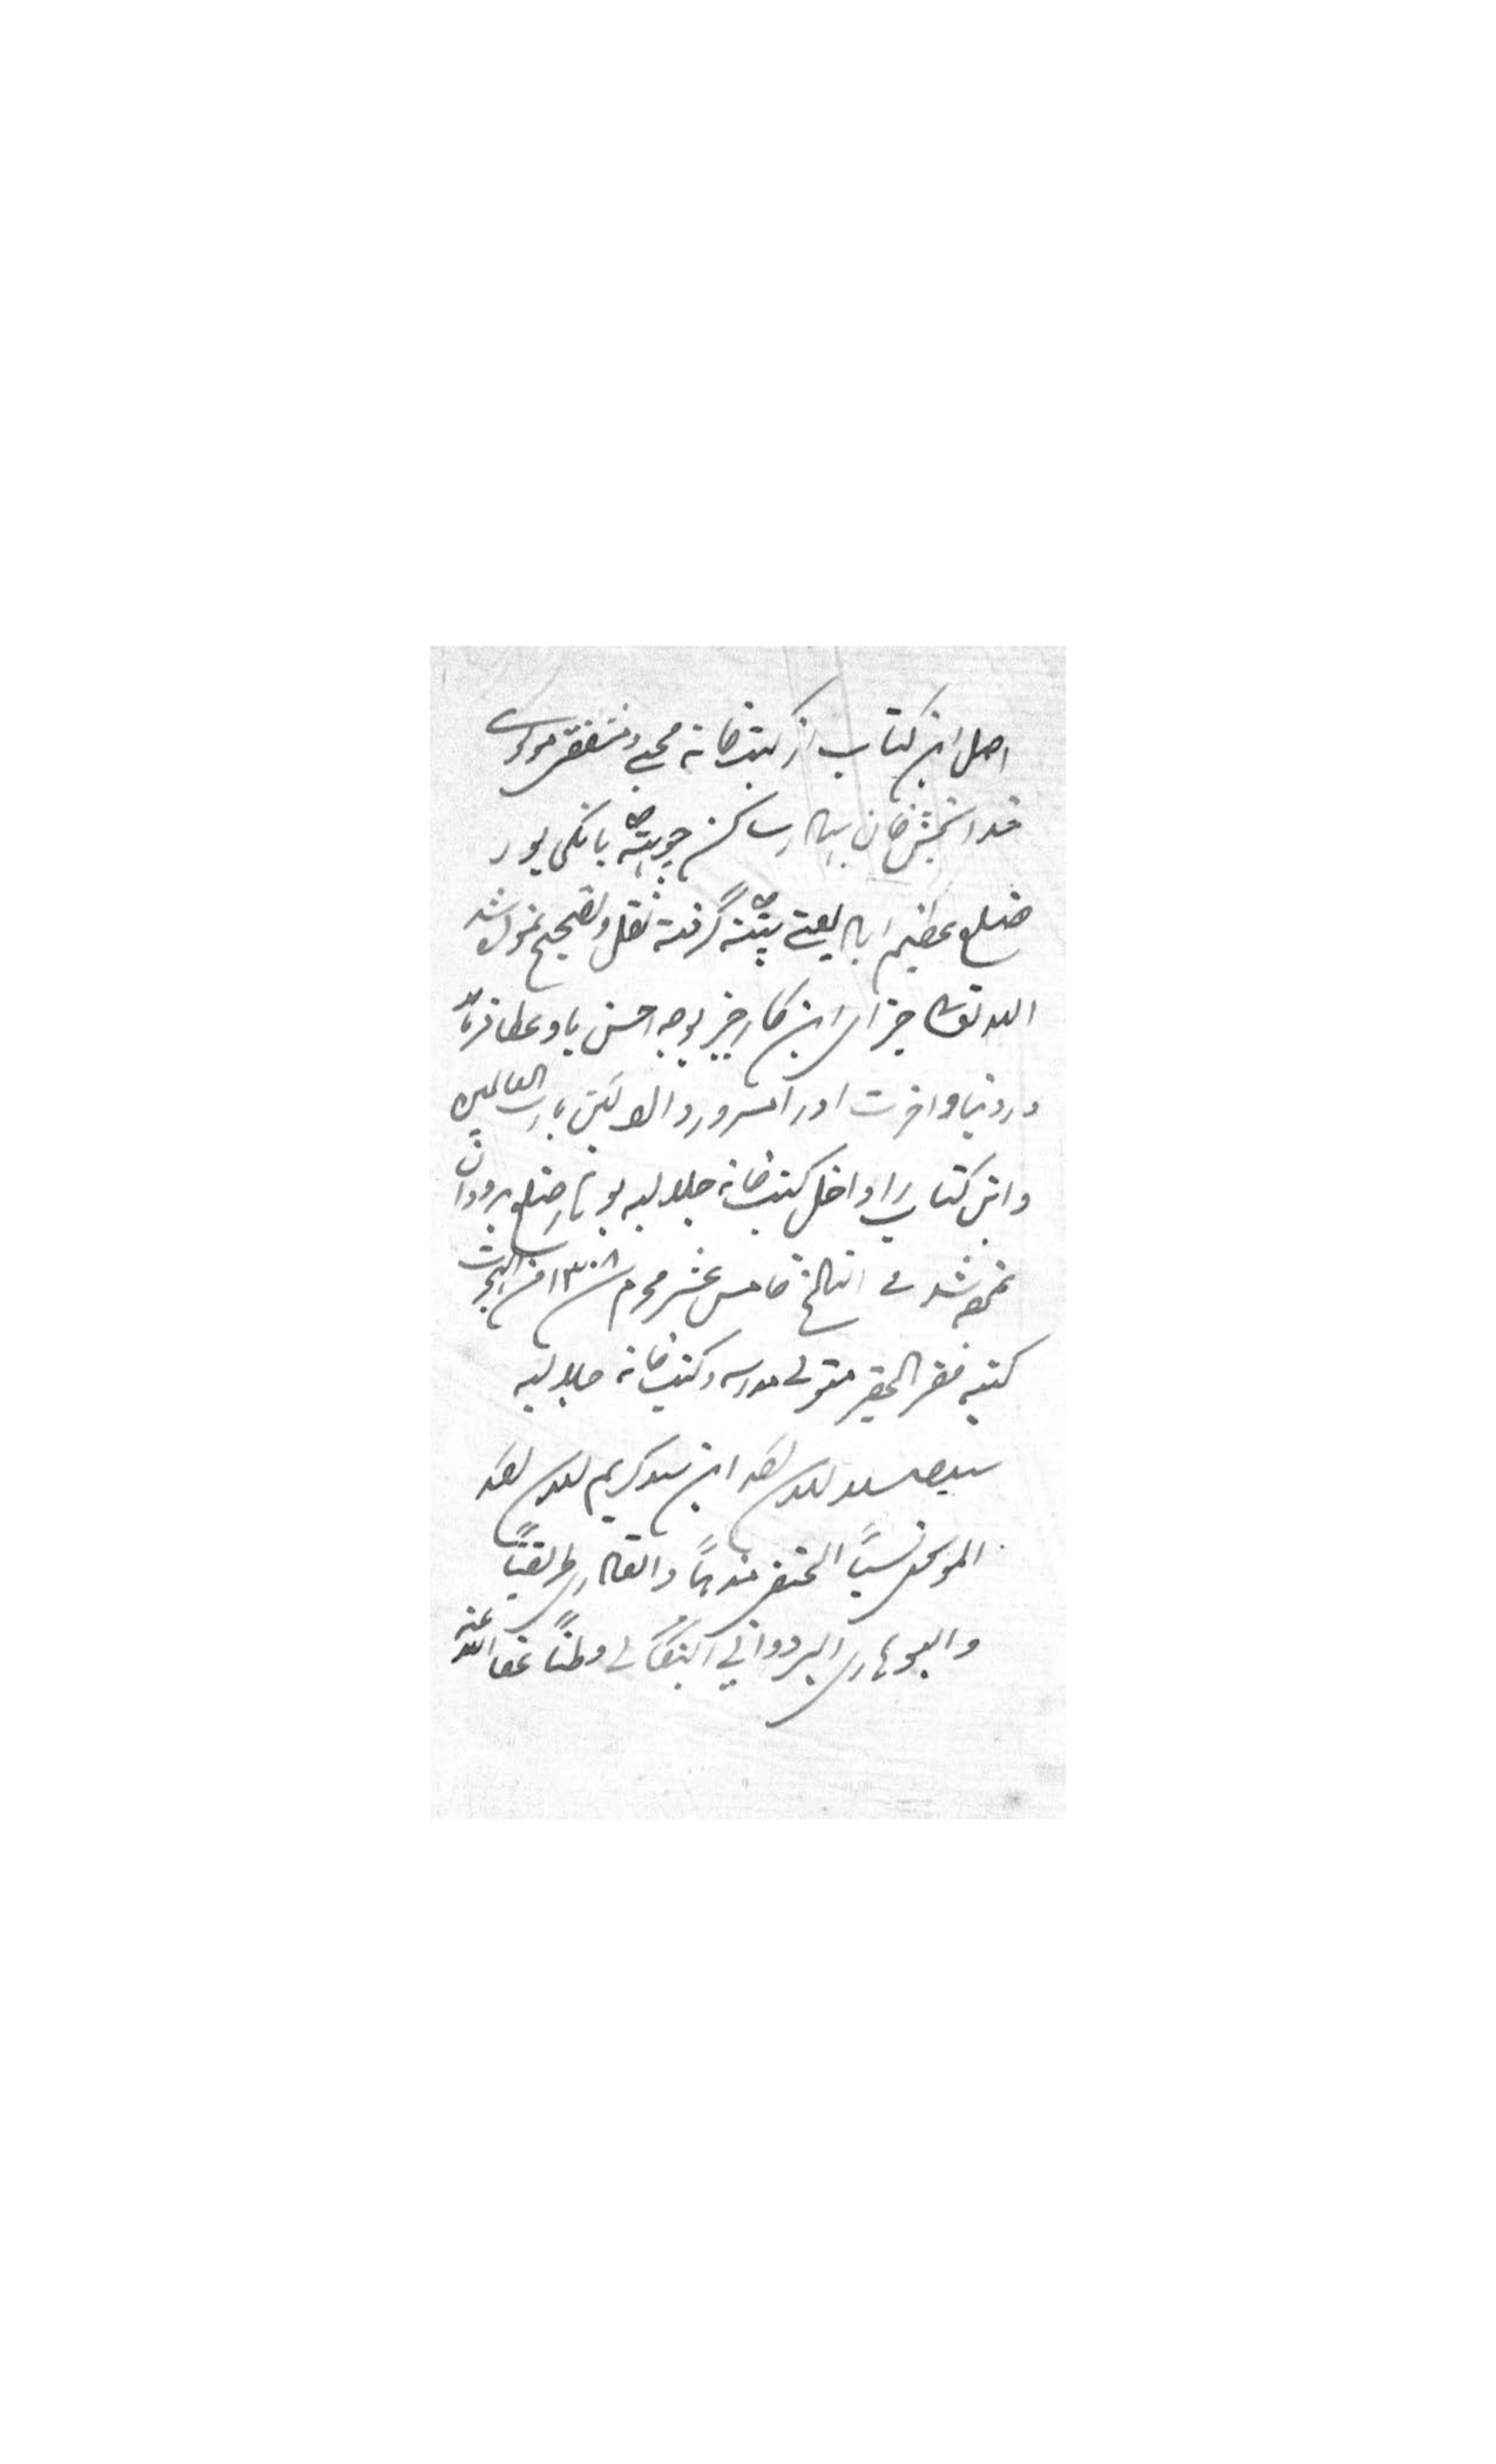 اصل این کتاب از کتبخانه محبی و مشفقی مولوی
خدا بخش خان بہادر ساکن چوہٹہ بانکی پور
ضلع عظیم اباد یعنے پٹنہ گرفتہ نقل و تصحیح نموده شد
الله تعالی جزای این کار خیر بوجه احسن باو عطا فرماید
در دنیا و اخرت او را مسرور دارد یا رب العالمین
و این کتاب را داخل کتبخانه جلالیه بوہار ضلع بردوان
نموده شد فی التاریخ خامس عشر محرم ۱۳۰۸ من الهجرت
کتبه فقیر الحقیر متولی مدرسه و کتبخانه جلالیه
سید صدر الدین احمد ابن سید کریم الدین احمد
الموسوی نسباً الحنفی مذهباً و القادری طریقتاً
و البوہاری البردوانی البنگالی وطناً عفا الله عنه